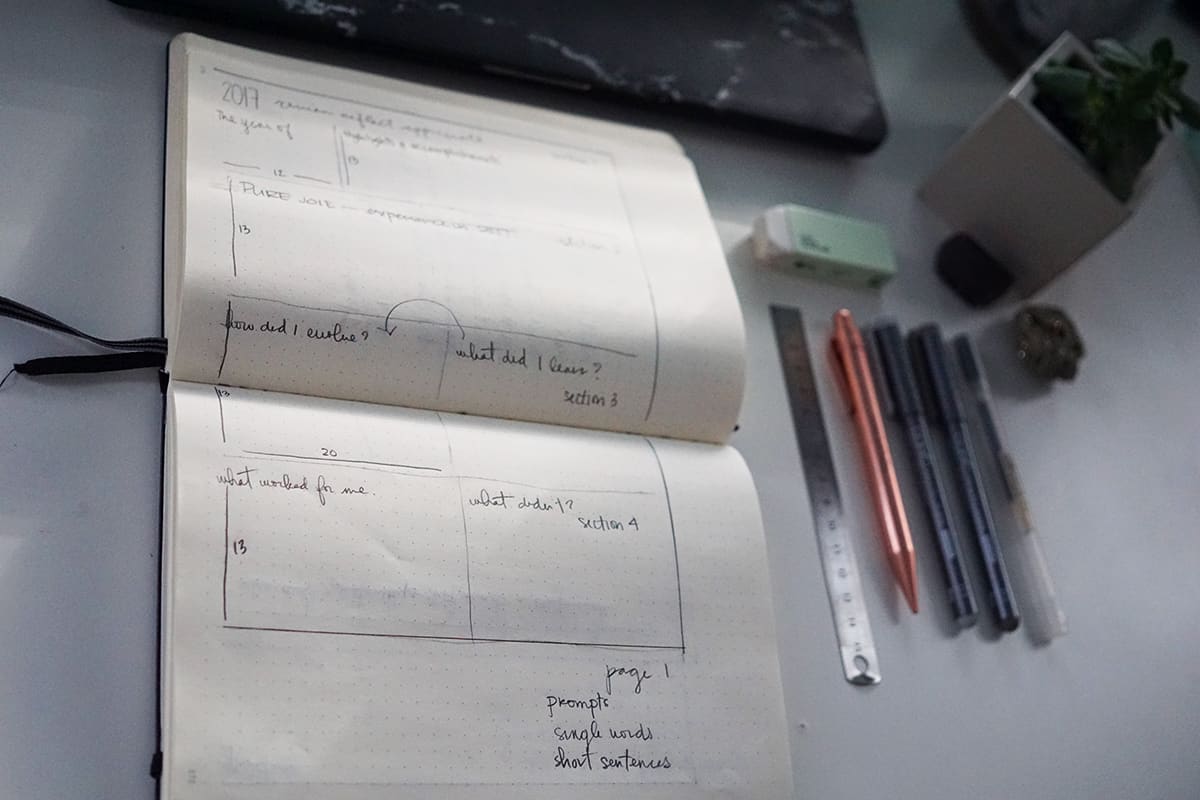 2017 review reflect appreciate
The year of
highlights & accomplishments
13
12
PURE JOIE — experience in
13
how did I evolve?
what did I learn?
section 3
13
20
what worked for me.
what didn't?
section 4
13
page 1
prompts
single words
short sentences